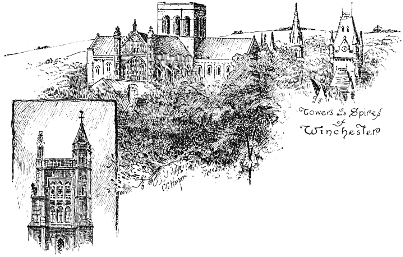 Towers & Spires
of
Winchester